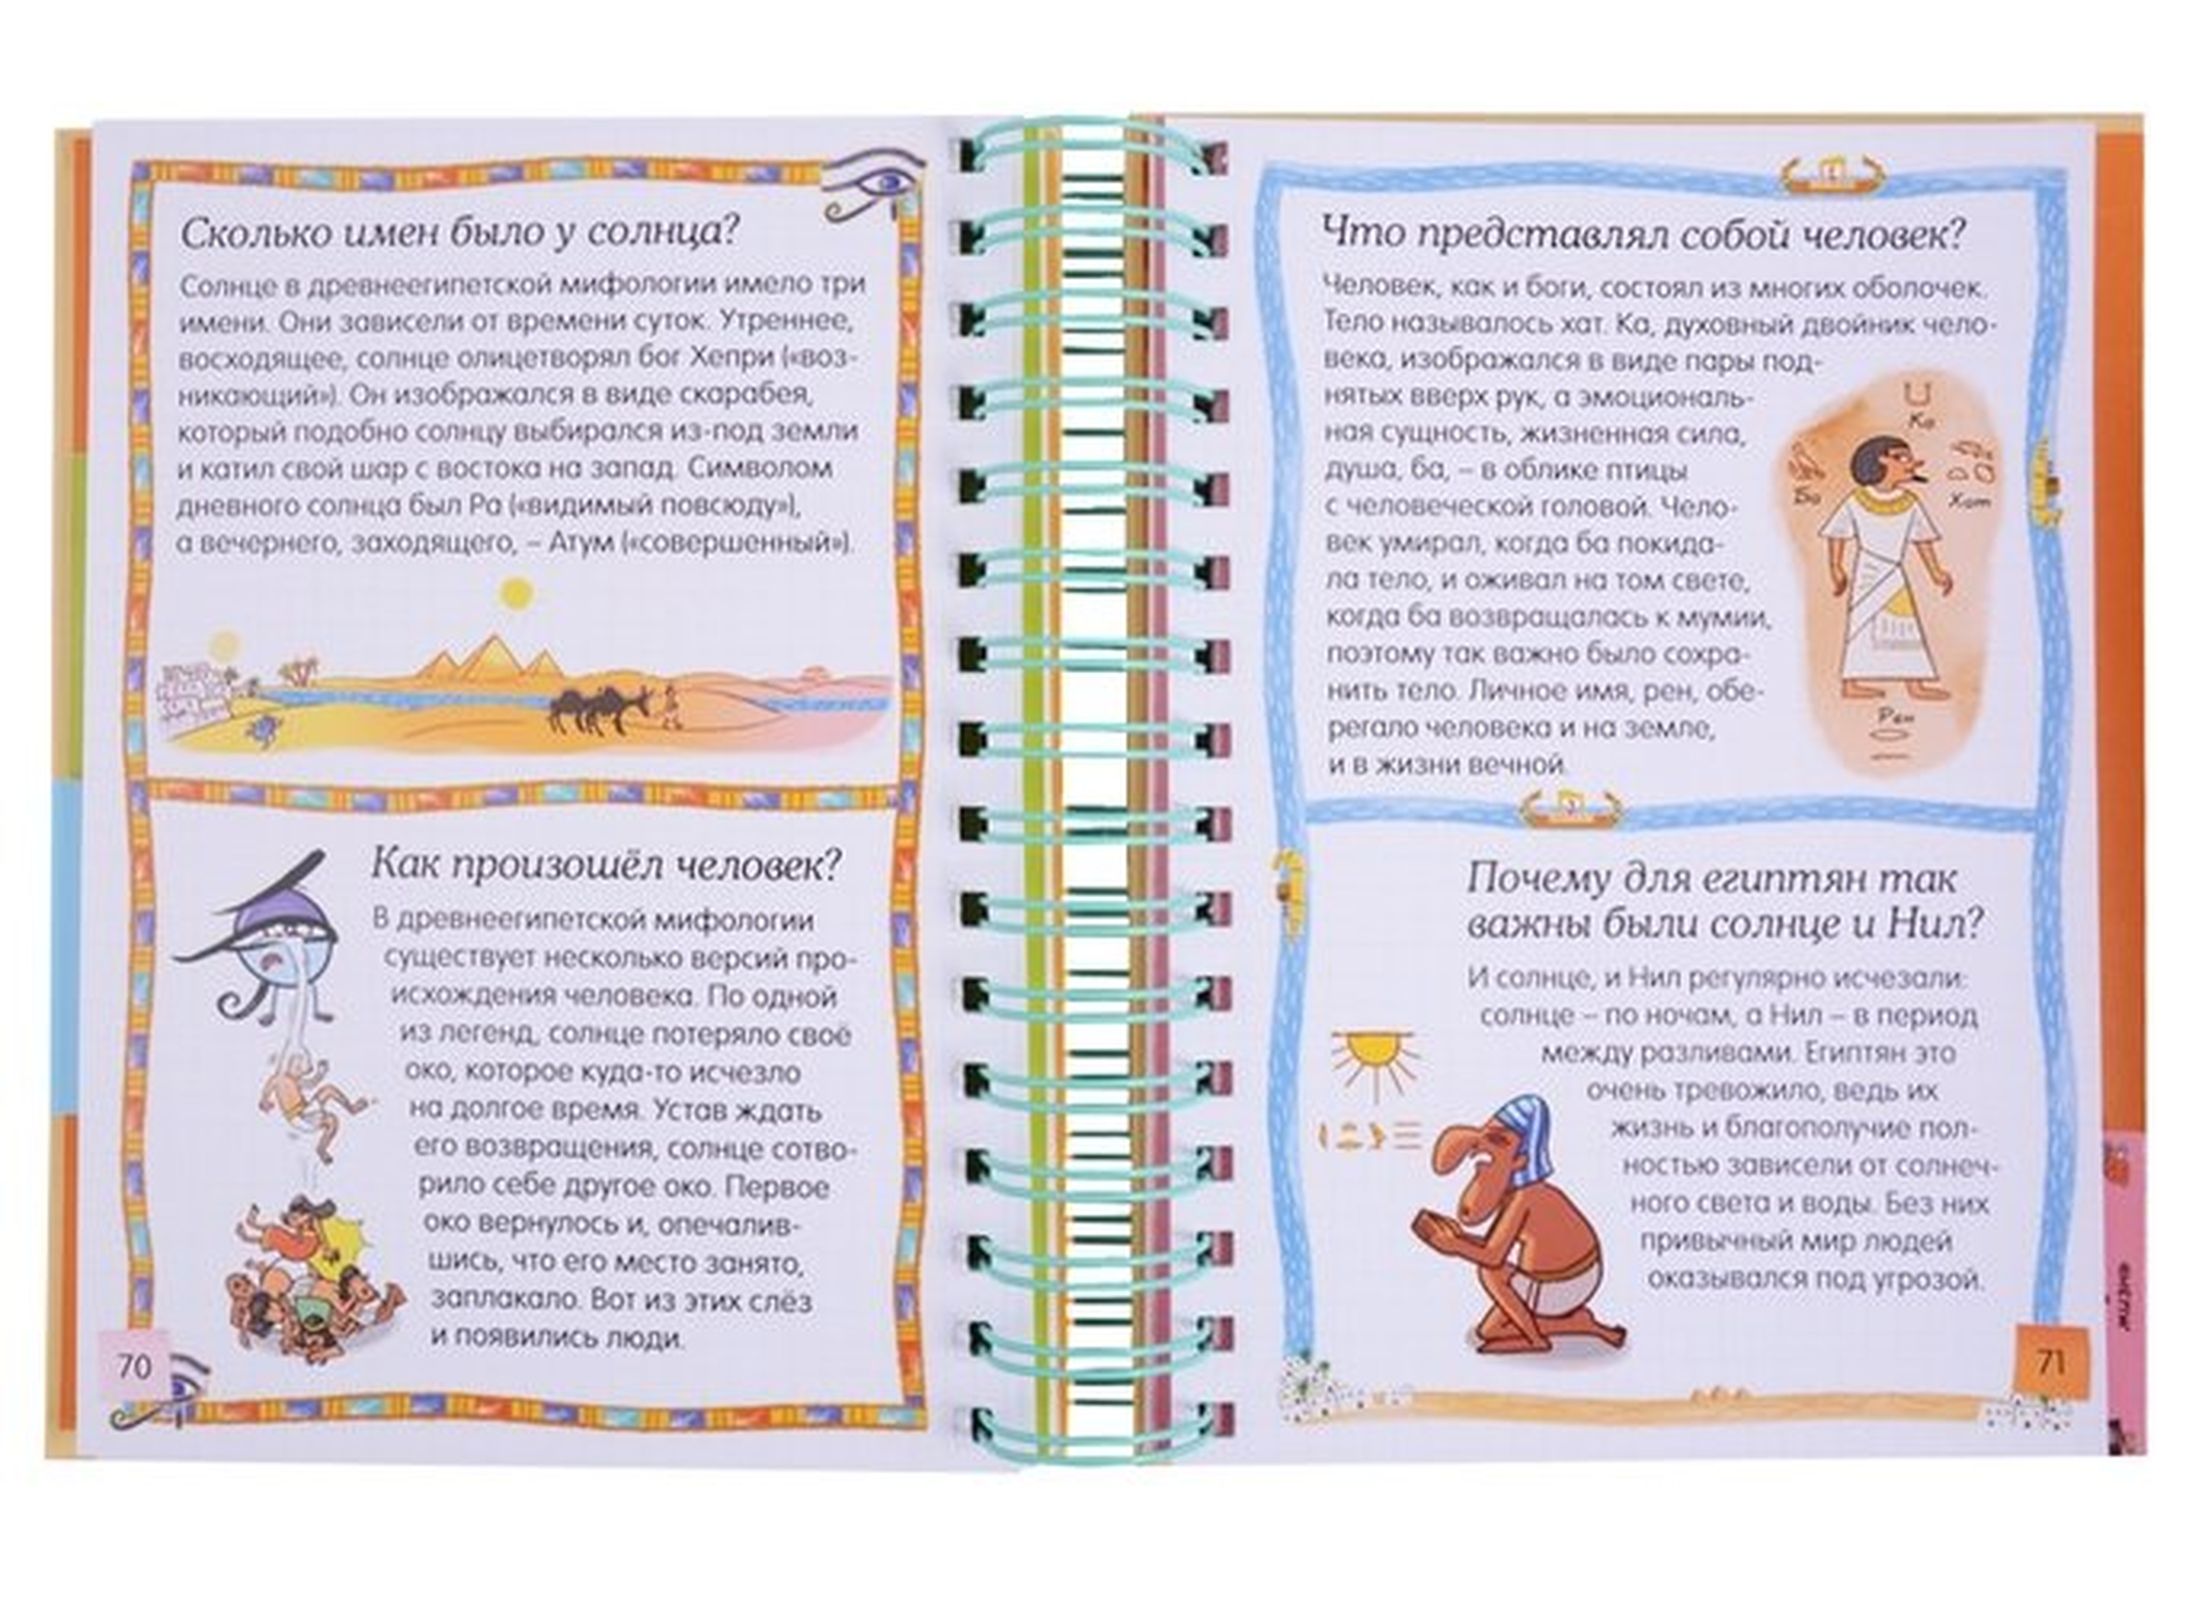 Сколько имен было у солнца?
Солнце в древнеегипетской мифологии имело три
имени. Они зависели от времени суток. Утреннее,
восходящее, солнце олицетворял бог Хепри («воз-
никающий»). Он изображался в виде скарабея,
который подобно солнцу выбирался из-под земли
и катил свой шар с востока на запад. Символом
дневного солнца был Ра («видимый повсюду»),
а вечернего, заходящего, – Атум («совершенный»).
Как произошёл человек?
В древнеегипетской мифологии
существует несколько версий про-
исхождения человека. По одной
из легенд, солнце потеряло своё
око, которое куда-то исчезло
на долгое время. Устав ждать
его возвращения, солнце сотво-
рило себе другое око. Первое
око вернулось и, опечалив-
шись, что его место занято,
заплакало. Вот из этих слёз
и появились люди.
70
Что представлял собой человек?
Человек, как и боги, состоял из многих оболочек.
Тело называлось хат. Ка, духовный двойник чело-
века, изображался в виде пары под-
нятых вверх рук, а эмоциональ-
ная сущность, жизненная сила,
душа, ба, – в облике птицы
с человеческой головой. Чело-
век умирал, когда ба покида-
ла тело, и оживал на том свете,
когда ба возвращалась к мумии,
поэтому так важно было сохра-
нить тело. Личное имя, рен, обе-
регало человека и на земле,
и в жизни вечной.
Ка
Ба
Хат
Рен
Почему для египтян так
важны были солнце и Нил?
И солнце, и Нил регулярно исчезали:
солнце – по ночам, а Нил – в период
между разливами. Египтян это
очень тревожило, ведь их
жизнь и благополучие пол-
ностью зависели от солнеч-
ного света и воды. Без них
привычный мир людей
оказывался под угрозой.
71